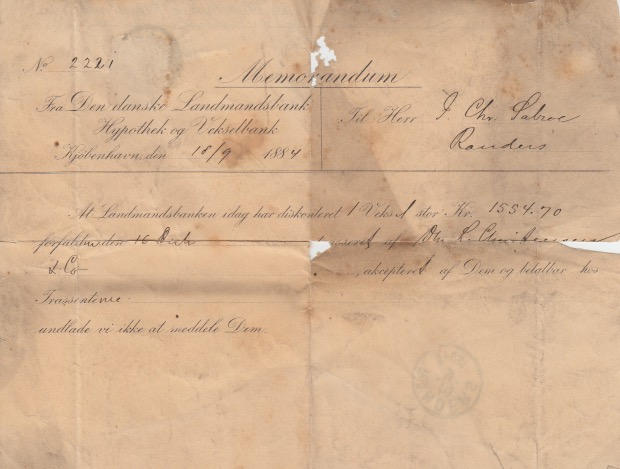 No 2221
Memorandum
Fra Den danske Landmandsbank
Hypothek og Vekselbank
Kjøbenhavn, den 18/9 1884
Til Herr J. Chr. Sabroe
Randers
At Landmandsbanken idag har diskonteret 1 Veksel stor Kr. 1554.70
forfalden den 16 af Chr.
& Co , akcepteret af Dem og betalbar hos
Trassenterne
undlade vi ikke at meddele Dem.